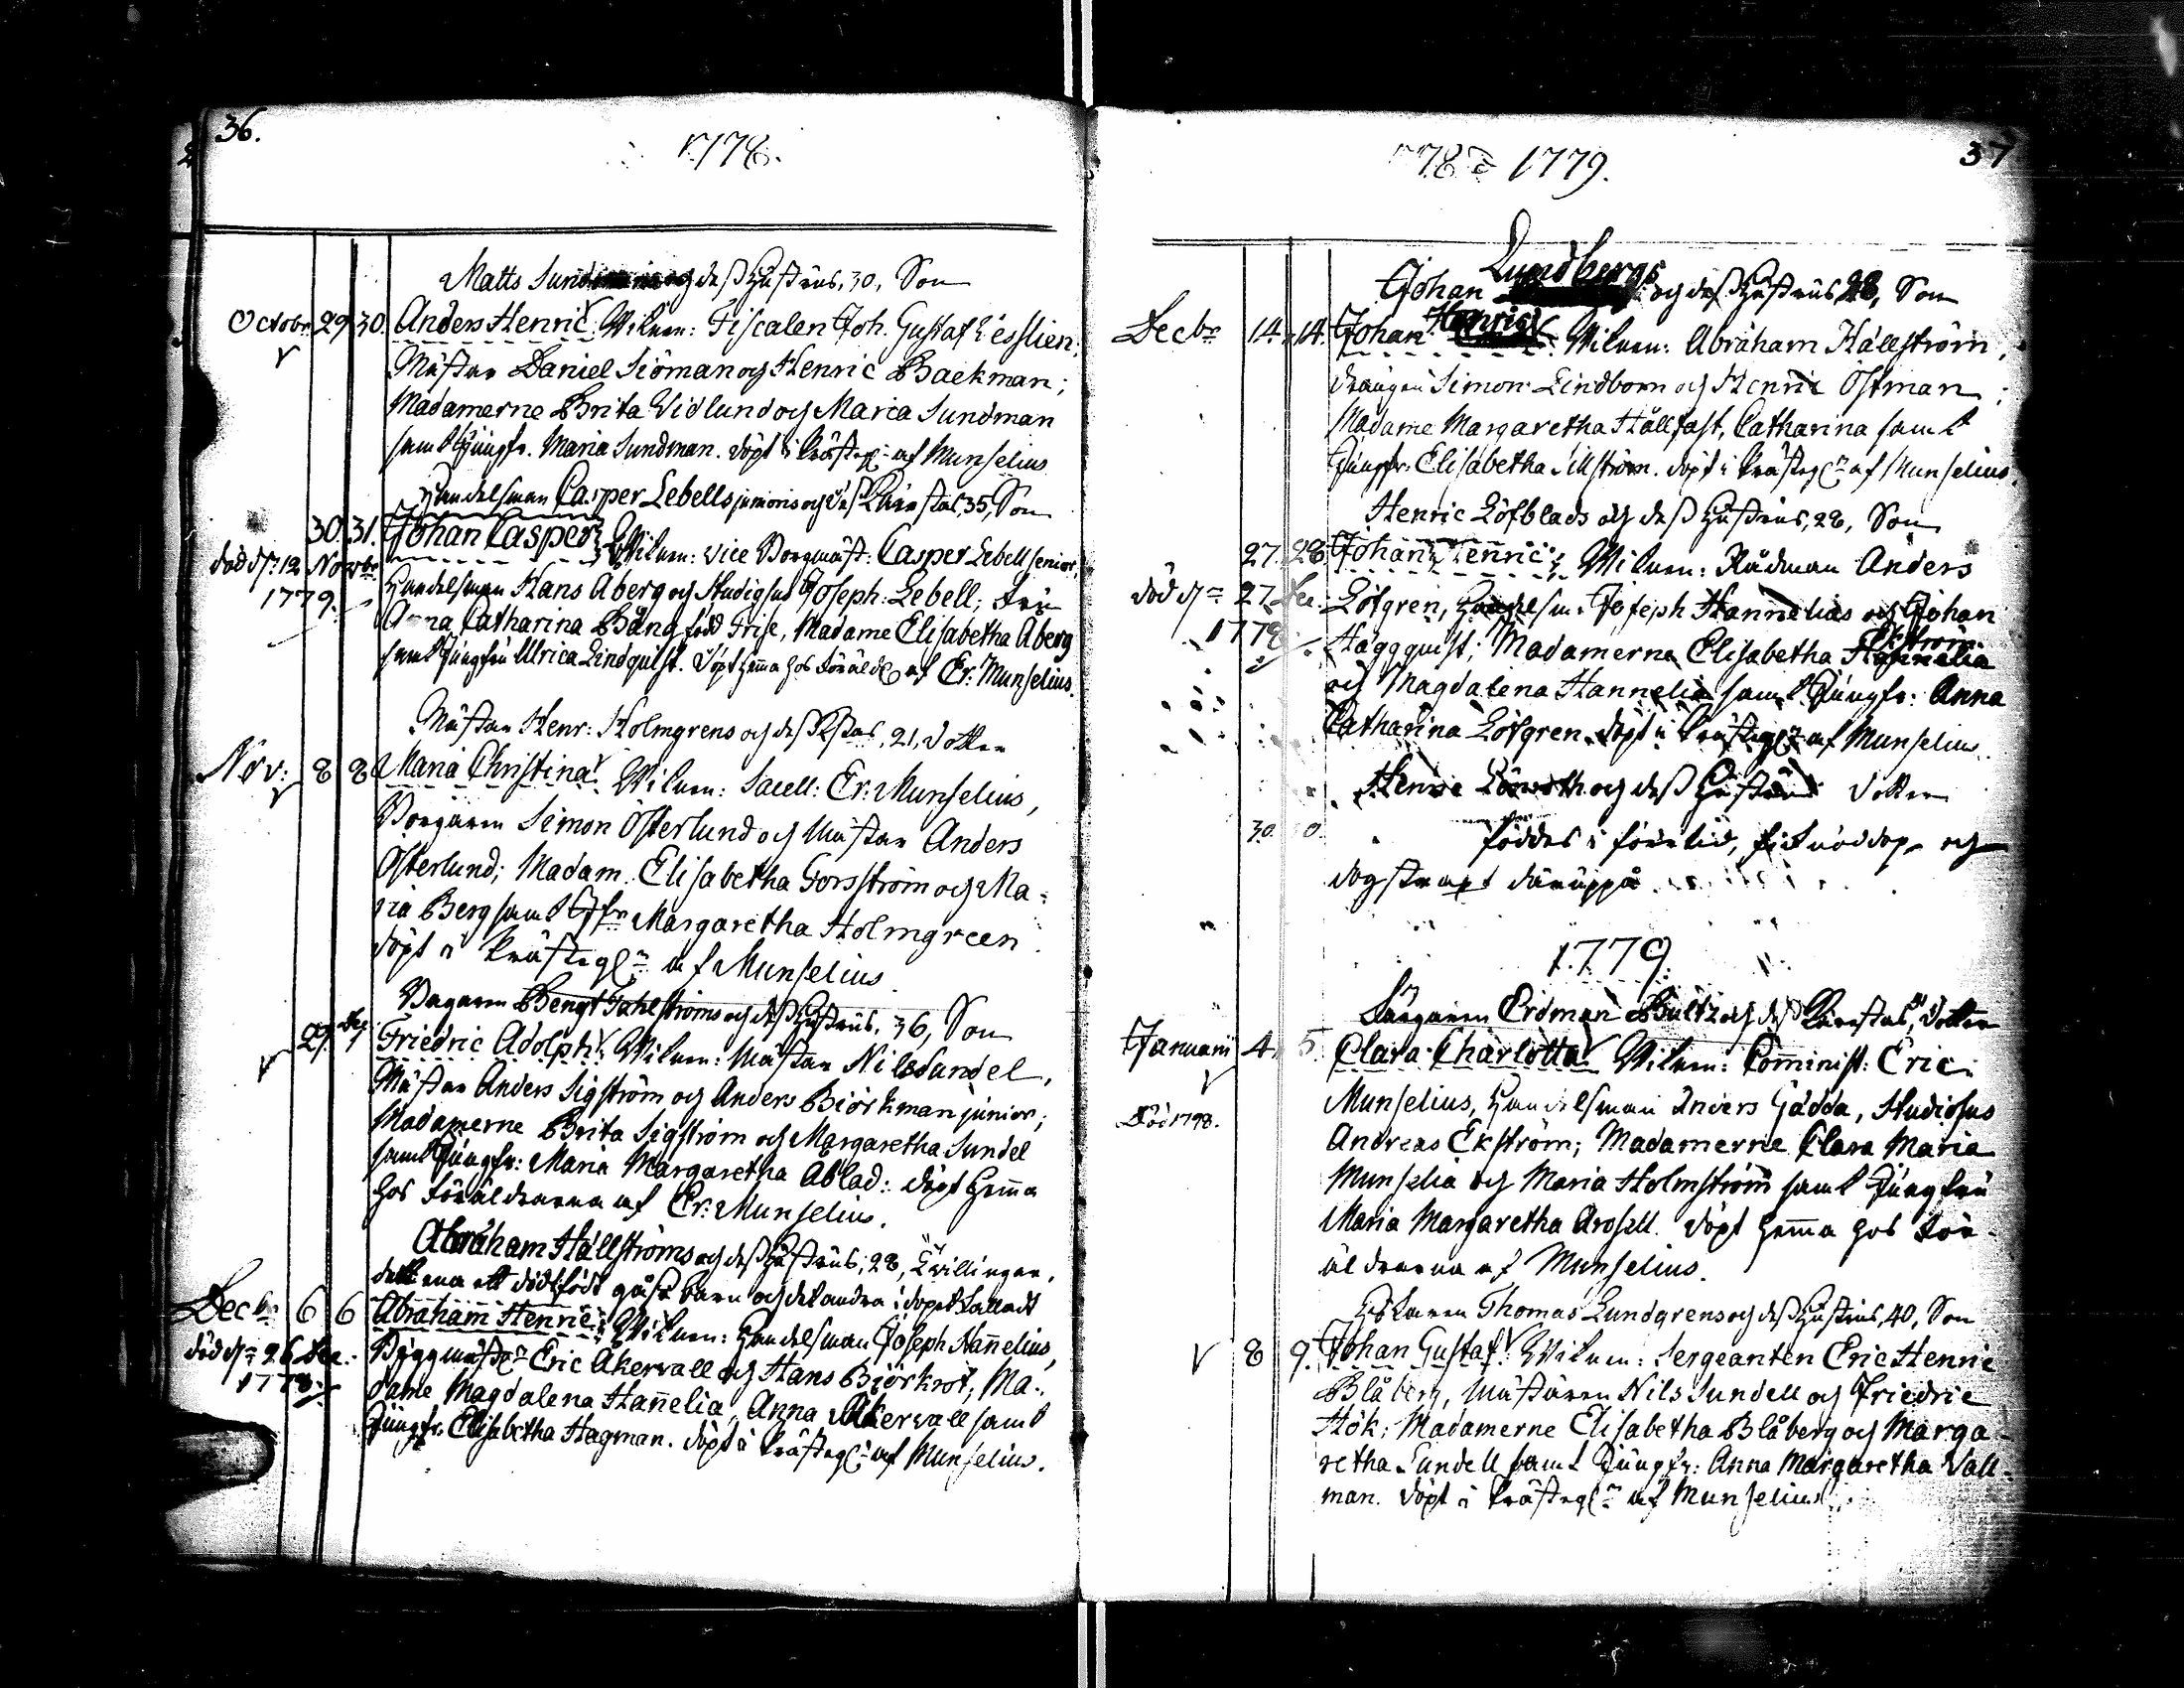 36.
1778.
Matts Sund og deß Hustrus, 30, Son
Octobr. 29 30. Anders Henric. Witnen: Fiscalen Joh. Gustaf
Mästar Daniel Siöman och Henric Backman;
Madamerne Brita Widlund och Maria Sundman
samt Jungfr. Maria Sundman. döpt i Prästeg: af Munselius
Handelsman Casper Lebells junioris och deß Kärestas, 35, Son
30. 31. Johan Casper. Witnen: vice Borgmäst: Casper Lebell senior,
död d. 12 Novbr
1779.
Handelsman Hans Åberg och Studiosus Joseph Lebell; Fru
Anna Catharina Bång född Frise, Madame Elisabetha Åberg
samt Jungfru Ulrica Lindquist. Döpt hemma hos föräld af Er: Munselius.
Mästar Henr: Holmgrens och deß K:stas, 21, dotter
Nov: 8 8 Maria Christina. Witnen: Sacell: Er: Munselius,
Borgaren Simon Österlund och Mästar Anders
Österlund; Madam. Elisabetha Forsström och Ma-
ria Berg samt Jfr Margaretha Holmgreen.
döpt i Prästegn af Munselius.
Bagaren Bengt Fahlströms och deß Hustrus, 36, Son
29. Friedric Adolph. Witnen: Mästar Nils Sundel,
Mästar Anders Sigström och Anders Biörkman junior;
Madamerne Brita Sigström och Margaretha Sundel
samt Jungfr: Maria Margaretha Ablad: döpt hemma
hos Föräldrarna af Er: Munselius.
Abraham Hällströms och deß Hustrus, 28, Twillingar,
det ena ett dödfödt barn och det andra i dopet kalladt
Decbr: 6 6 Abraham Henric. Witnen: Handelsman Joseph Hannelius,
död d. 26 Dec.
1778.
Byggmästn Eric Åkervall och Hans Biörkrot; Ma-
dame Magdalena Hannelia, Anna Åkervall samt
Jungfr. Elisabetha Hagman. döpt i Prästeg af Munselius.
37
1778 1779.
Lundbergs
Johan och deß Hustrus 28, Son
Henric
Decbr 14. 14. Johan. Witnen: Abraham Hällström,
drängen Simon Lindborn och Henric Östman;
Madame Margaretha Hållfast, Catharina samt
Jungfr. Elisabetha. döpt i Prästegn af Munselius.
Henric Löfblads och deß Hustrus, 28, Son
27. 28. Johan Henric. Witnen: Rådman Anders
död dn 27 Dec.
1778.
Löfgren, Handelsm: Joseph Hannelius och Johan
Ekström
Häggquist; Madamerne Elisabetha Hannelia
och Magdalena Hannelia samt Jungfr: Anna
Catharina Löfgren. döpt i Prästegn af Munselius.
Henric och deß Hustrus dotter
30. 30. föddes i förtid, fick nöddop och
dog strax deruppå.
1779.
Färgaren Erdman Bultz och deß Kärestas, dotter
Januarii 4. 5. Clara Charlotta. Witnen: Comminist: Eric
Munselius, Handelsman Anders Gädda, Studiosus
Död 1798.
Andreas Ekström; Madamerne Clara Maria
Munselia och Maria Holmström samt Jungfru
Maria Margaretha Arosell. döpt hemma hos För-
äldrarna af Munselius.
Thomas Lundgrens och deß Hustrus, 40, Son
8 9. Johan Gustaf. Witnen: Sergeanten Eric Henric
Blåberg, Mästaren Nils Sundell och Friedric
Hök; Madamerne Elisabetha Blåberg och Marga-
retha Sundell samt Jungfr: Anna Margaretha Vall-
man. döpt i Prästegn af Munselius.